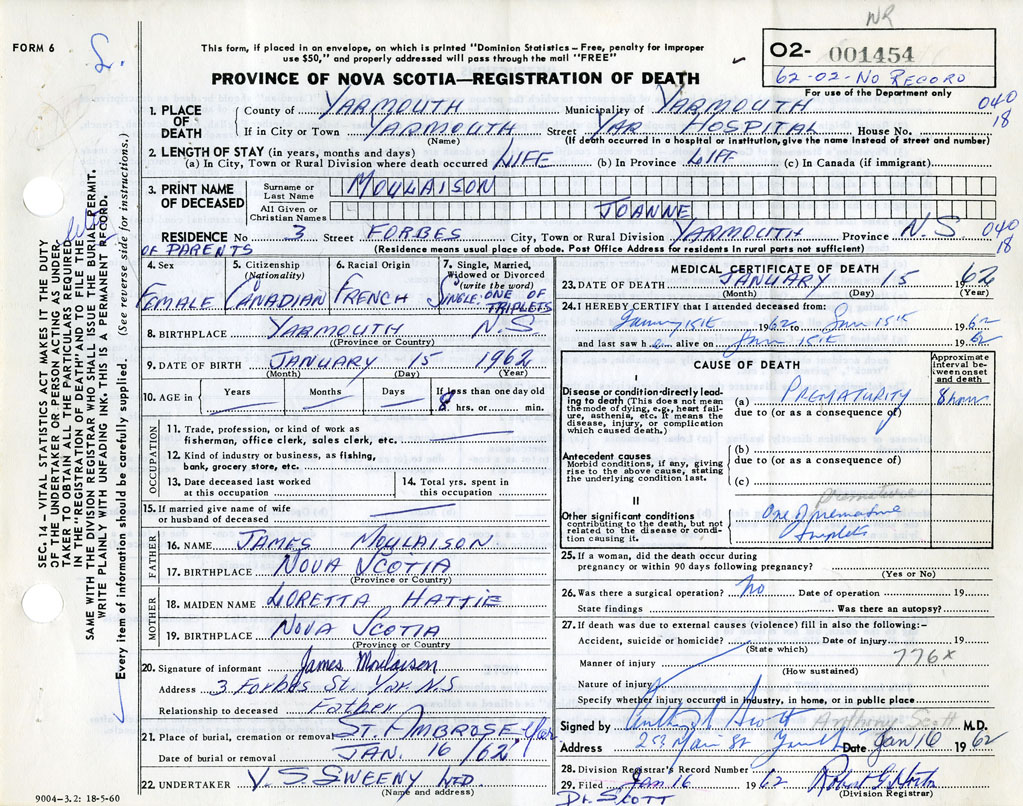 NR
FORM 6
This form, if placed in an envelope, on which is printed "Dominion Statistics – Free, penalty for improper
use $50," and properly addressed will pass through the mail "FREE"
PROVINCE OF NOVA SCOTIA—REGISTRATION OF DEATH
02- 001454
62-02-NO RECORD
For use of the Department only
040
18
1. PLACE OF DEATH
County of YARMOUTH Municipality of YARMOUTH
If in City or Town YARMOUTH Street YAR HOSPITAL House No.
(Name) (If death occurred in a hospital or institution, give the name instead of street and number)
2. LENGTH OF STAY (in years, months and days)
(a) In City, Town or Rural Division where death occurred LIFE (b) In Province LIFE (c) In Canada (if immigrant)
3. PRINT NAME OF DECEASED
Surname or Last Name MOULAISON
All Given or Christian Names JOANNE
RESIDENCE No 3 Street FORBES City, Town or Rural Division YARMOUTH Province N.S 040
18
OF PARENTS (Residence means usual place of abode. Post Office Address for residents in rural parts not sufficient)
4. Sex 5. Citizenship (Nationality) 6. Racial Origin 7. Single, Married, Widowed or Divorced (write the word)
FEMALE CANADIAN FRENCH SINGLE. ONE OF TRIPLETS
8. BIRTHPLACE YARMOUTH N S
(Province or County)
9. DATE OF BIRTH JANUARY 15 1962
(Month) (Day) (Year)
10. AGE in Years Months Days If less than one day old
8 hrs. or min.
OCCUPATION
11. Trade, profession, or kind of work as
fisherman, office clerk, sales clerk, etc.
12. Kind of industry or business, as fishing,
bank, grocery store, etc.
13. Date deceased last worked at this occupation
14. Total yrs. spent in this occupation
15. If married give name of wife
or husband of deceased
FATHER
16. NAME JAMES MOULAISON
17. BIRTHPLACE NOVA SCOTIA
(Province or Country)
MOTHER
18. MAIDEN NAME LORETTA HATTIE
19. BIRTHPLACE NOVA SCOTIA
(Province or Country)
20. Signature of informant James Moulaison
Address 3 Forbes St. Yar. N.S
Relationship to deceased Father
21. Place of burial, cremation or removal ST. AMBROSE Yar
Date of burial or removal JAN. 16 /62
22. UNDERTAKER V. S SWEENY LTD.
(Name and address)
9004-3.2: 18-5-60
MEDICAL CERTIFICATE OF DEATH
23. DATE OF DEATH JANUARY 15 1962
(Month) (Day) (Year)
24. I HEREBY CERTIFY that I attended deceased from:
1962 to Jan 15 1962
and last saw h er alive on Jan 15 1962
CAUSE OF DEATH
Approximate interval between onset and death
I
Disease or condition directly leading to death (This does not mean
the mode of dying, e.g., heart failure, asthenia, etc. It means the
disease, injury, or complication
which caused death.)
(a) PREMATURITY 8 hours
due to (or as a consequence of)
Antecedent causes
Morbid conditions, if any, giving
rise to the above cause, stating
the underlying condition last.
(b)
due to (or as a consequence of)
(c)
II
Other significant conditions
contributing to the death, but not
related to the disease or condition causing it.
premature
One of premature
triplets
25. If a woman, did the death occur during
pregnancy or within 90 days following pregnancy?
(Yes or No)
26. Was there a surgical operation? No Date of operation 19
State findings Was there an autopsy?
27. If death was due to external causes (violence) fill in also the following:—
Accident, suicide or homicide? Date of injury 19
(State which)
Manner of injury 776x
(How sustained)
Nature of injury
Specify whether injury occurred in industry, in home, or in public place
Signed by Anthony Scott Anthony Scott M.D.
Address Main St Date Jan 16 1962
28. Division Registrar's Record Number
29. Filed Jan 16 1962 Robert G North
(Division Registrar)
Dr. Scott
SEC. 14 – VITAL STATISTICS ACT MAKES IT THE DUTY
OF THE UNDERTAKER OR PERSON ACTING AS UNDERTAKER TO OBTAIN ALL THE PARTICULARS REQUIRED
IN THE "REGISTRATION OF DEATH" AND TO FILE THE
SAME WITH THE DIVISION REGISTRAR WHO SHALL ISSUE THE BURIAL PERMIT.
WRITE PLAINLY WITH UNFADING INK. THIS IS A PERMANENT RECORD.
Every item of information should be carefully supplied. (See reverse side for instructions.)